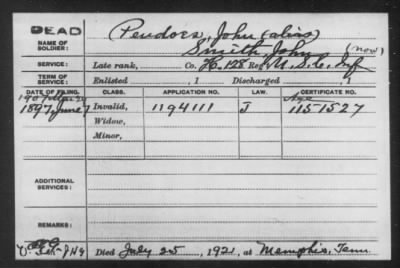 DEAD
NAME OF SOLDIER: Pendors, John (alias)
Smith, John (now)
SERVICE: Late rank, Co. H, 128 Reg't U.S.C. Inf
TERM OF SERVICE: Enlisted , 1 Discharged , 1
DATE OF FILING. CLASS. APPLICATION NO. LAW. CERTIFICATE NO.
1907 Mar Age
1897 June 7 Invalid, 1194111 J 1151527
Widow,
Minor,
ADDITIONAL SERVICES:
REMARKS:
Died July 25, 1921, at Memphis, Tenn.